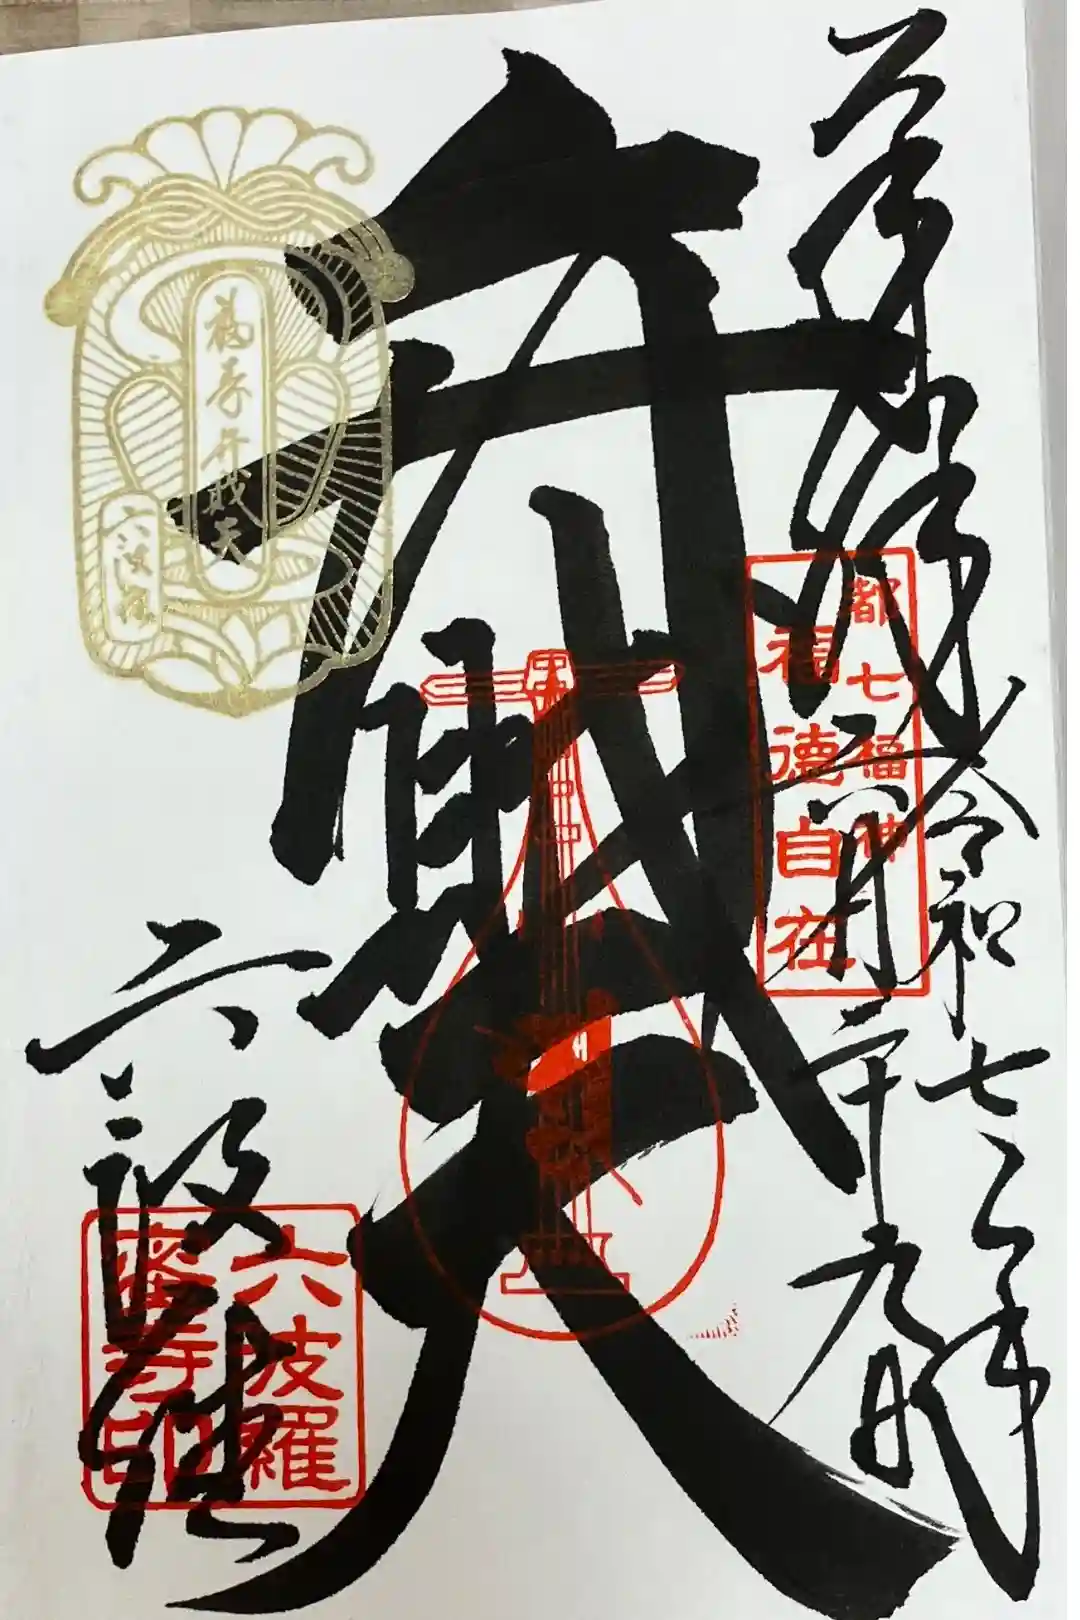 奉拝
令和七年
六月二十九日
都七福神
福徳自在
弁財天
福寿弁財天
六波羅
六波羅
六波羅
蜜寺印